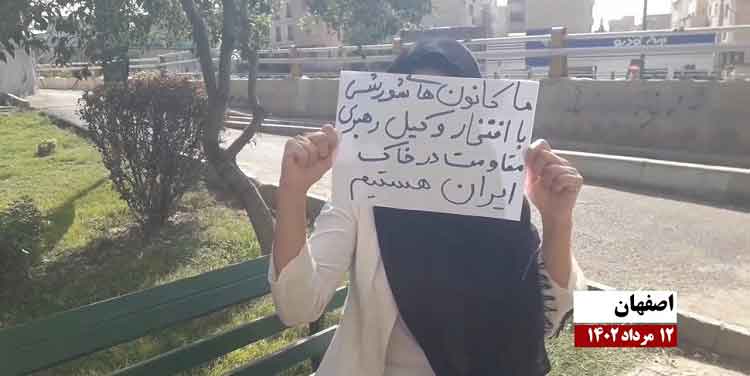 ما کانون های شورشی
با افتخار وکیل رهبری
مقاومت در خاک
ایران هستیم
اصفهان
۱۲ مرداد ۱۴۰۲